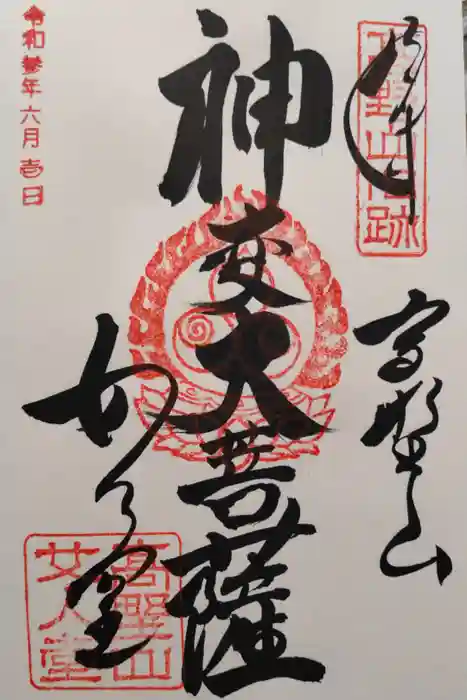 奉拝
高野山
高野山旧跡
神変大菩薩
女人堂
高野山
女人堂
令和叁年六月壱日